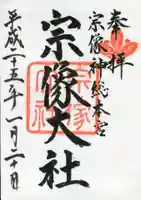 奉拝
宗像神総本宮
宗像大社
平成二十五年一月二十日